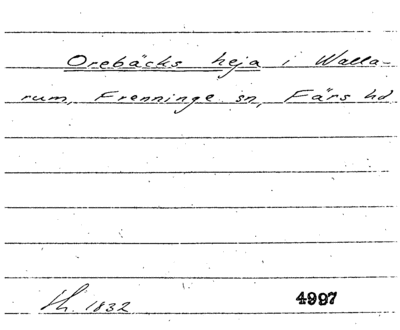 Orebäcks heja i Walla-
rum, Frenninge sn, Färs hd
1832
4997